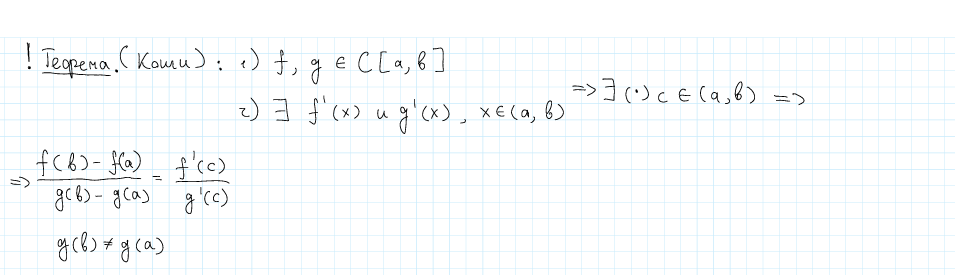 ! Теорема. (Коши): 1) f, g ∈ C[a, b]
2) ∃ f'(x) и g'(x), x∈(a, b) => ∃ (·) c ∈ (a, b) =>
=> (f(b) - f(a))/(g(b) - g(a)) = f'(c)/g'(c)
g(b) ≠ g(a)